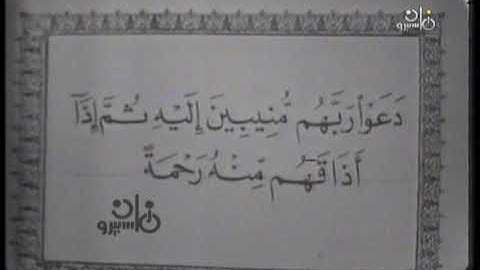 ماسبيرو زمان
دَعَوْا۟ رَبَّهُم مُّنِيبِينَ إِلَيْهِ ثُمَّ إِذَآ
أَذَاقَهُم مِّنْهُ رَحْمَةً
ماسبيرو زمان